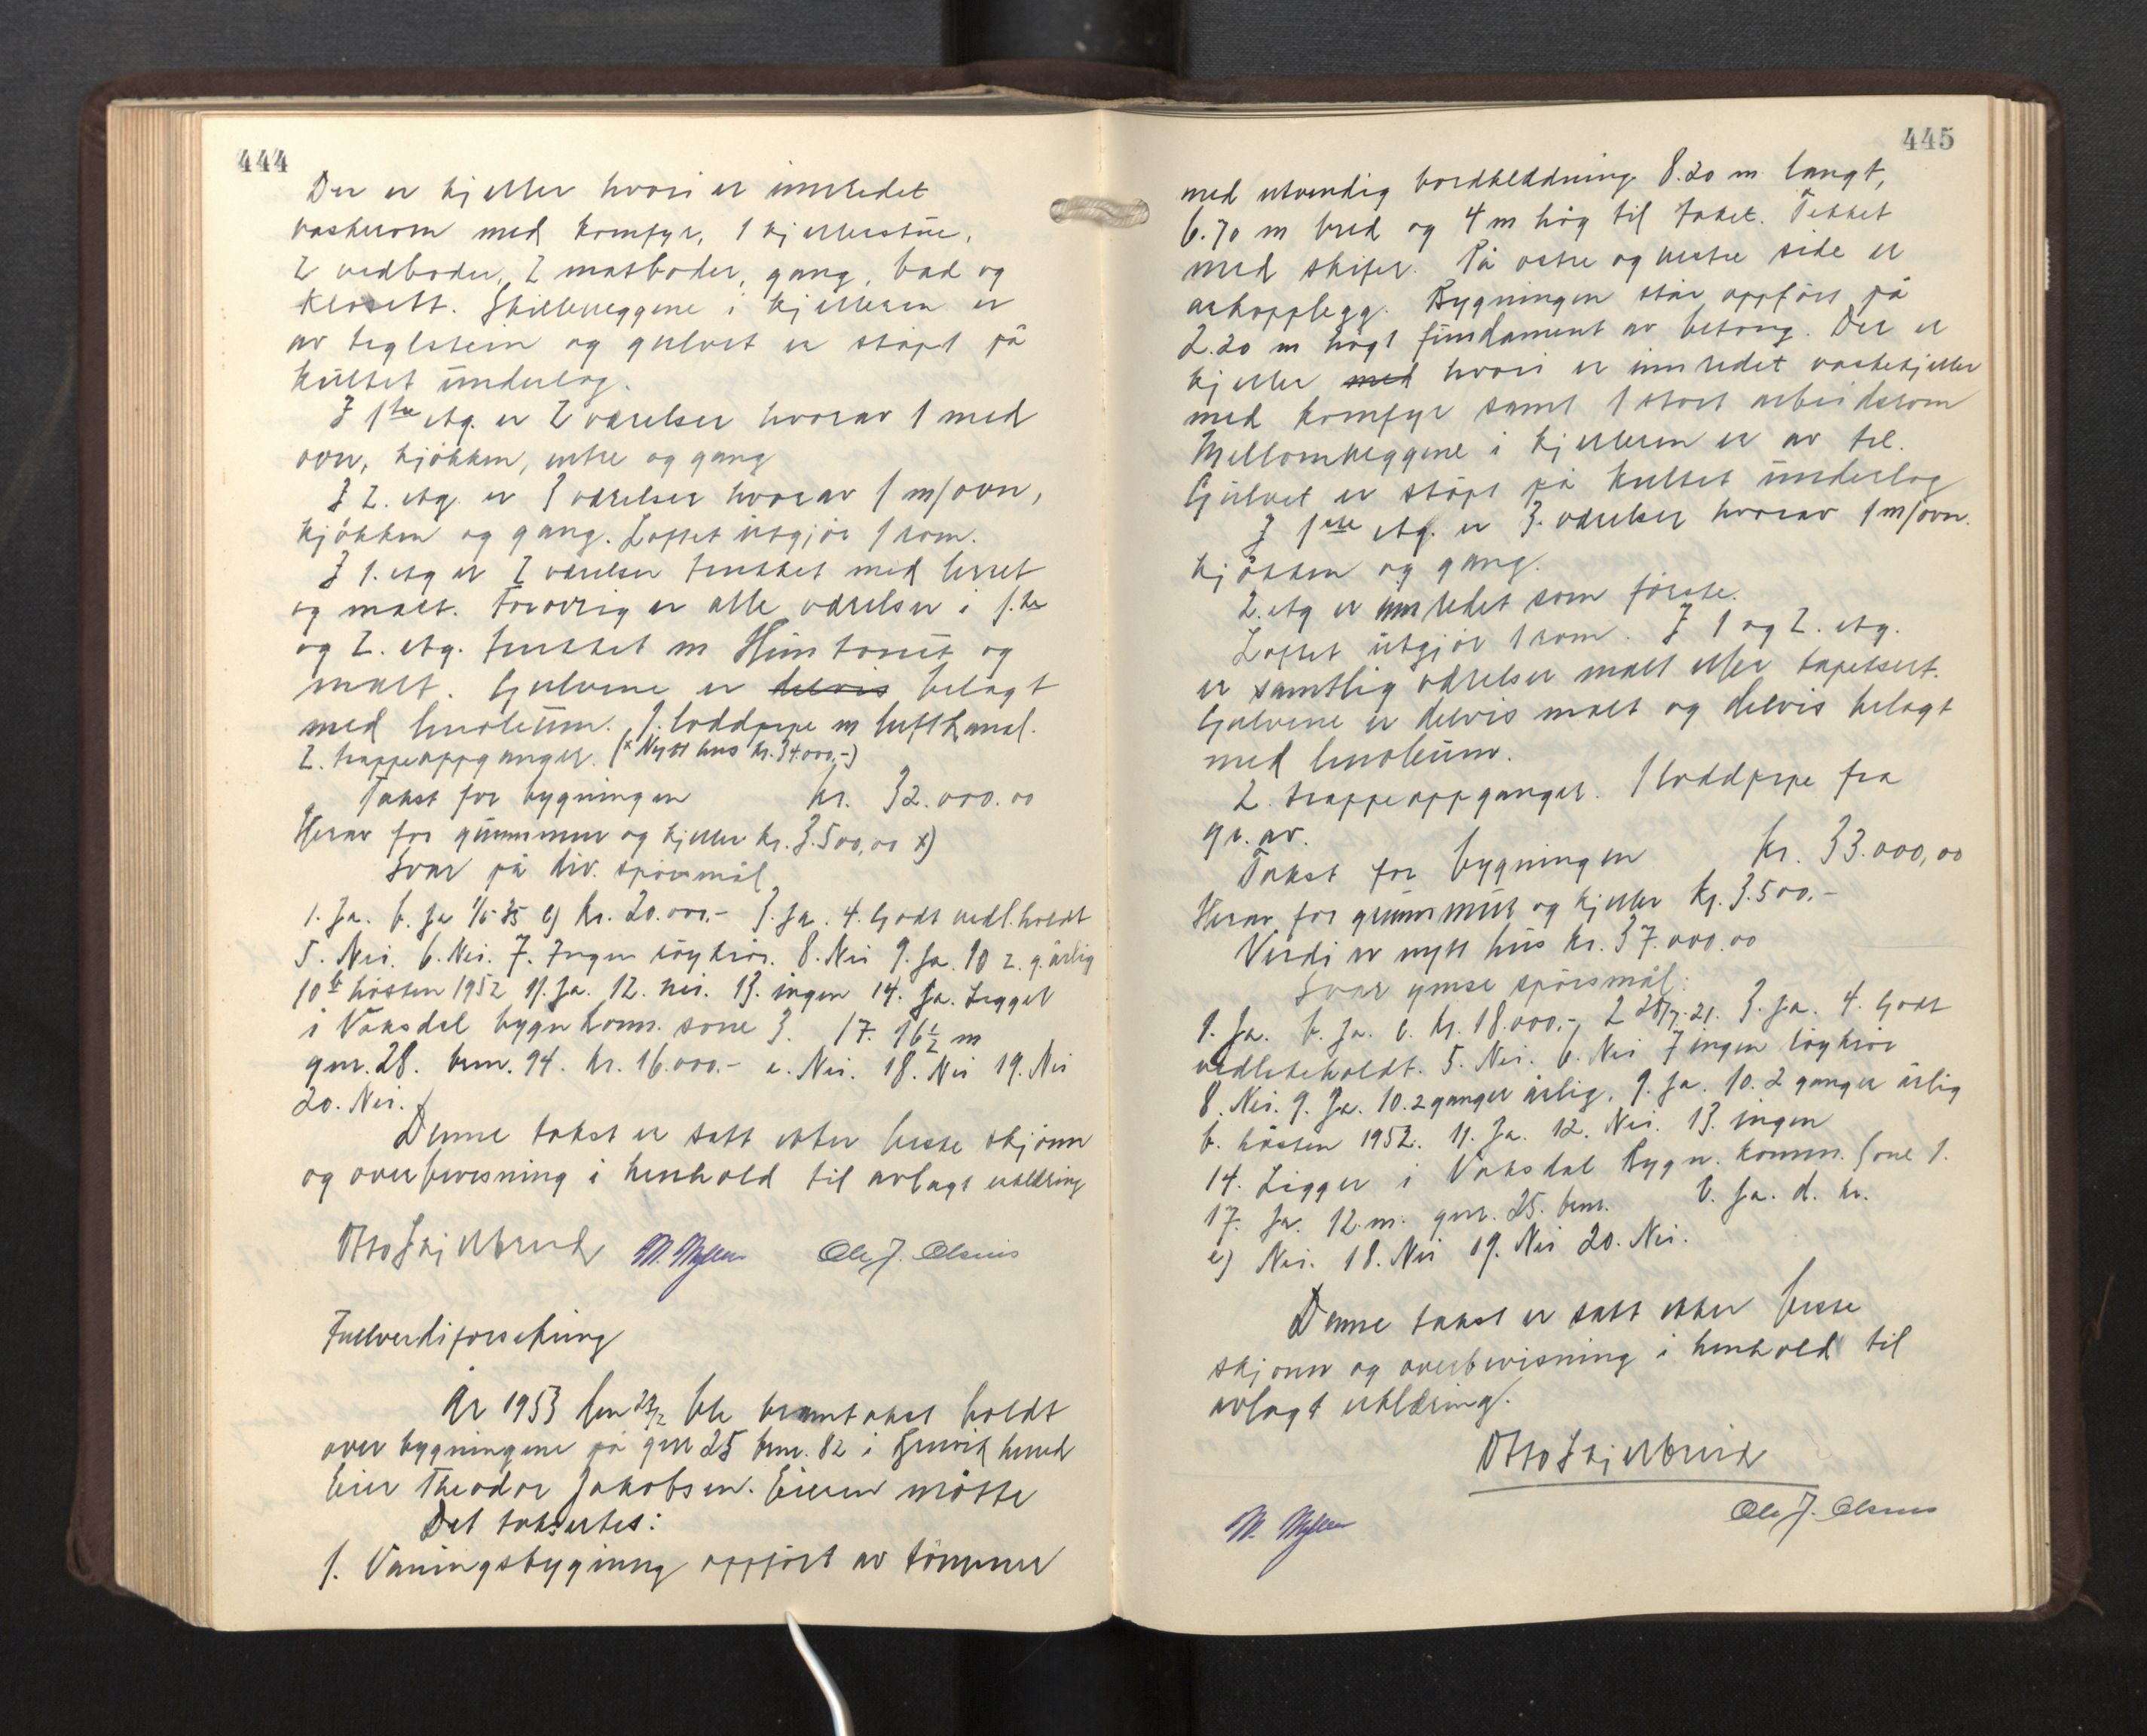 444
Der er kjeller hvori er innredet
vaskerom med komfyr, 1 kjellerstue,
2 vedboder, 2 matboder, gang, bad og
klosett. Skilleveggene i kjelleren er
av teglstein og gulvet er støpt på
kultet underlag.
I 1ste etg. er 2 værelser hvorav 1 med
ovn, kjøkken, entre og gang
I 2. etg. er 3 værelser hvorav 1 m/ovn,
kjøkken og gang. Loftet utgjør 1 rom.
I 1. etg er 2 værelser trukket med lerret
og malt. Forøvrig er alle værelser i 1.ste
og 2. etg. trukket m Huntonit og
malt. Gulvene er delvis belagt
med linoleum. 1. loddpipe m luftkanal.
2. trappeoppganger. (x Nytt hus kr. 34000,-)
Takst for bygningen kr. 32.000.00
Herav for grunnmur og kjeller kr. 3.500,00 x)
Svar på div. spørsmål
1. Ja. b. Ja 1/6-35 c) kr. 20.000.- 3. Ja. 4. Godt vedl.holdt
5. Nei. 6. Nei. 7. Ingen røykrør. 8. Nei 9. Ja. 10 2. g. årlig
10 b høsten 1952 11. Ja. 12. nei. 13. ingen 14. Ja. Ligger
i Vaksdal bygn komm. sone 3. 17. 16½ m
gnr. 28. bnr. 94. kr. 16.000.- e. Nei. 18. Nei 19. Nei
20. Nei.
Denne takst er satt etter beste skjønn
og overbevisning i henhold til avlagt erklæring
Otto Skjelbreid M. Myllen Ole J. Olsnes
Fullverdiforsikring
År 1953 den 27/2 ble branntakst holdt
over bygningene på gnr 25 bnr. 82 i Bruvik herred
Eier Theodor Jakobsen. Eieren møtte
Det taksertes:
1. Våningsbygning oppført av tømmer
445
med utvendig bordkledning 8.20 m langt,
6.70 m bred og 4 m høg til taket. Tekket
med skifer. På østre og vestre side er
arkopplegg. Bygningen står oppført på
2.20 m høgt fundament av betong. Der er
kjeller med hvori er innredet vaskekjeller
med komfyr samt 1 stort arbeidsrom
Mellomveggene i kjelleren er av tre.
Gulvet er støpt på kultet underlag
I 1ste etg. er 3. værelser hvorav 1 m/ovn.
kjøkken og gang.
2. etg er innredet som første.
Loftet utgjør 1 rom. I 1 og 2. etg.
er samtlig værelser malt eller tapetsert.
Gulvene er delvis malt og delvis belagt
med linoleum.
2. trappeoppganger. 1 loddpipe fra
gr. av.
Takst for bygningen kr. 33.000,00
Herav for grunnmur og kjeller kr. 3.500.-
Verdi av nytt hus kr. 37.000.00
Svar ymse spørsmål:
1. Ja. b. Ja. c. kr. 18.000.-, 2 28/7-21. 3. Ja. 4. Godt
vedlikeholdt. 5. Nei. 6. Nei 7 ingen røykrør
8. Nei. 9. Ja. 10. 2 ganger årlig. 9. Ja. 10. 2 ganger årlig
b. høsten 1952. 11. Ja. 12. Nei. 13. ingen
14. Ligger i Vaksdal Bygn. komm. Sone 1.
17. Ja. 12. m. gnr. 25. bnr. b. Ja. d. kr.
e) Nei. 18. Nei 19. Nei 20. Nei.
Denne takst er satt etter beste
skjønn og overbevisning i henhold til
avlagt erklæring.
Otto Skjelbreid
M. Myllen Ole J. Olsnes